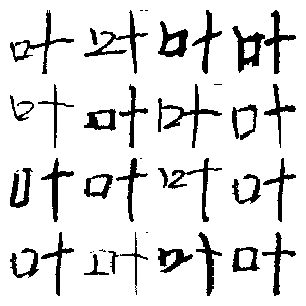 叶叶叶叶
叶叶叶叶
叶叶叶叶
叶叶叶叶